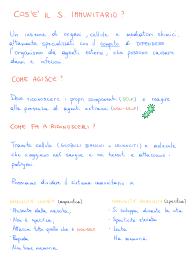 COS'È IL S. IMMUNITARIO?
Un insieme di organi, cellule e mediatori chimici
altamente specializzati con il compito di DIFENDERE
l'organismo da agenti esterni, che possono causare
danni e infezioni
COME AGISCE?
Deve riconoscere i propri componenti (SELF) e reagire
alla presenza di agenti estranei (NON-SELF)
COME FA A RICONOSCERLI?
Tramite cellule (GLOBULI BIANCHI o LEUCOCITI) e molecole
che viaggiano nel sangue e nei tessuti e attaccano i
patogeni
Possiamo dividere il sistema immunitario in
(aspecifica) (specifica)
- Presente dalla nascita, - Si sviluppa durante la vita
- Non è specifica, - Specificità elevata
- Attacca tutto quello che è NON-SELF - Lenta
- Rapida - Ha memoria
- Non ha memoria